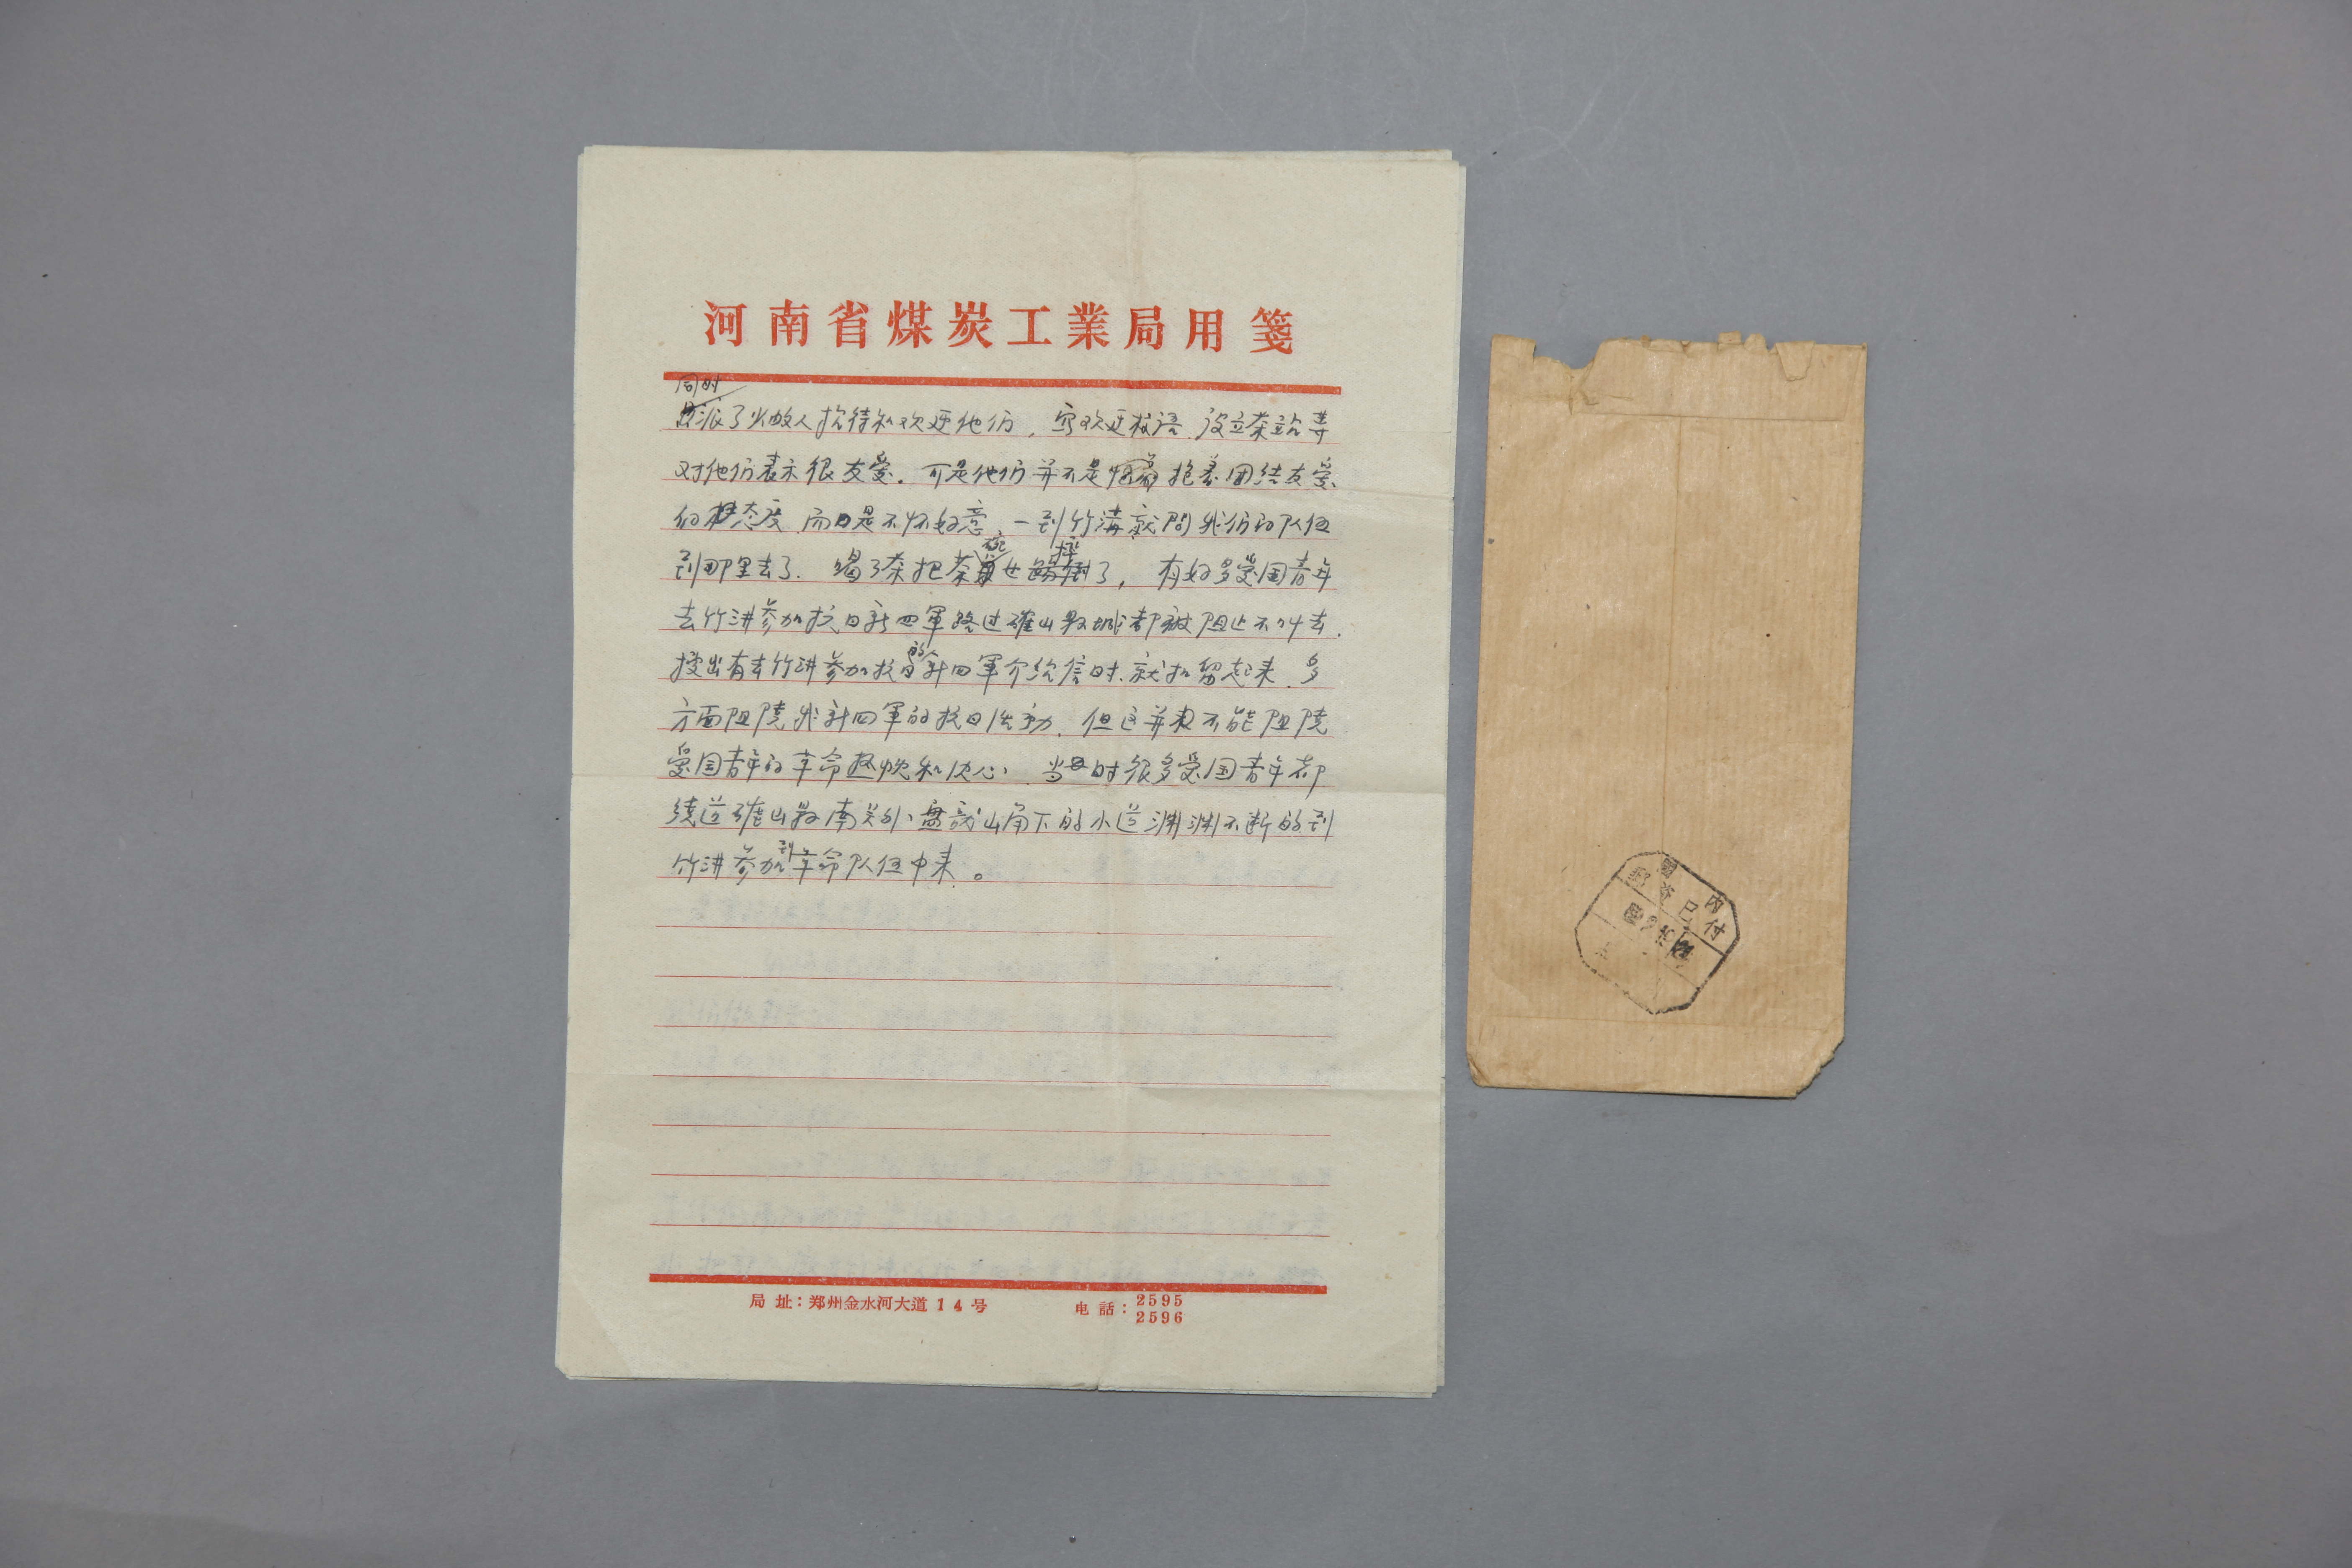 河南省煤炭工業局用箋
同时
派了少数人招待和欢迎他们，写欢迎标语、设立茶站等
对他们表示很友爱。可是他们并不是抱着团结友爱
的态度，而是不怀好意，一到竹溝就問我们的队伍
到那里去了．喝了茶把茶碗也摔了，有好多爱国青年
去竹沟参加抗日新四軍路过確山县城都被阻止不叫去．
搜出有去竹沟参加抗日的新四軍介绍信时．就扣留起来．多
方面阻隢我新四軍的抗日活动．但这并不能阻隢
爱国青年的革命热忱和决心．当时很多爱国青年都
繞道確山县南关外、盘龙山角下的小道渊渊不断的到
竹沟参加到革命队伍中来。
局址：郑州金水河大道14号 电話：2595
2596
國内
郵資已付